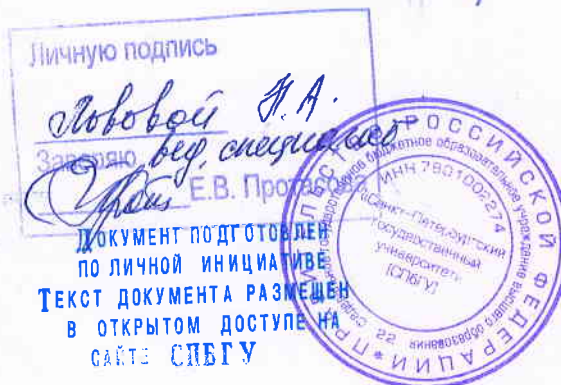 Личную подпись
Лвовой Н.А.
Заверяю вед. специалист
Е.В. Протасова
ДОКУМЕНТ ПОДГОТОВЛЕН
ПО ЛИЧНОЙ ИНИЦИАТИВЕ
ТЕКСТ ДОКУМЕНТА РАЗМЕЩЕН
В ОТКРЫТОМ ДОСТУПЕ НА
САЙТЕ СПБГУ
ПРАВИТЕЛЬСТВО РОССИЙСКОЙ ФЕДЕРАЦИИ
бюджетное образовательное учреждение высшего образования
ИНН 7801002274
«Санкт-Петербургский
государственный
университет»
(СПбГУ)
22